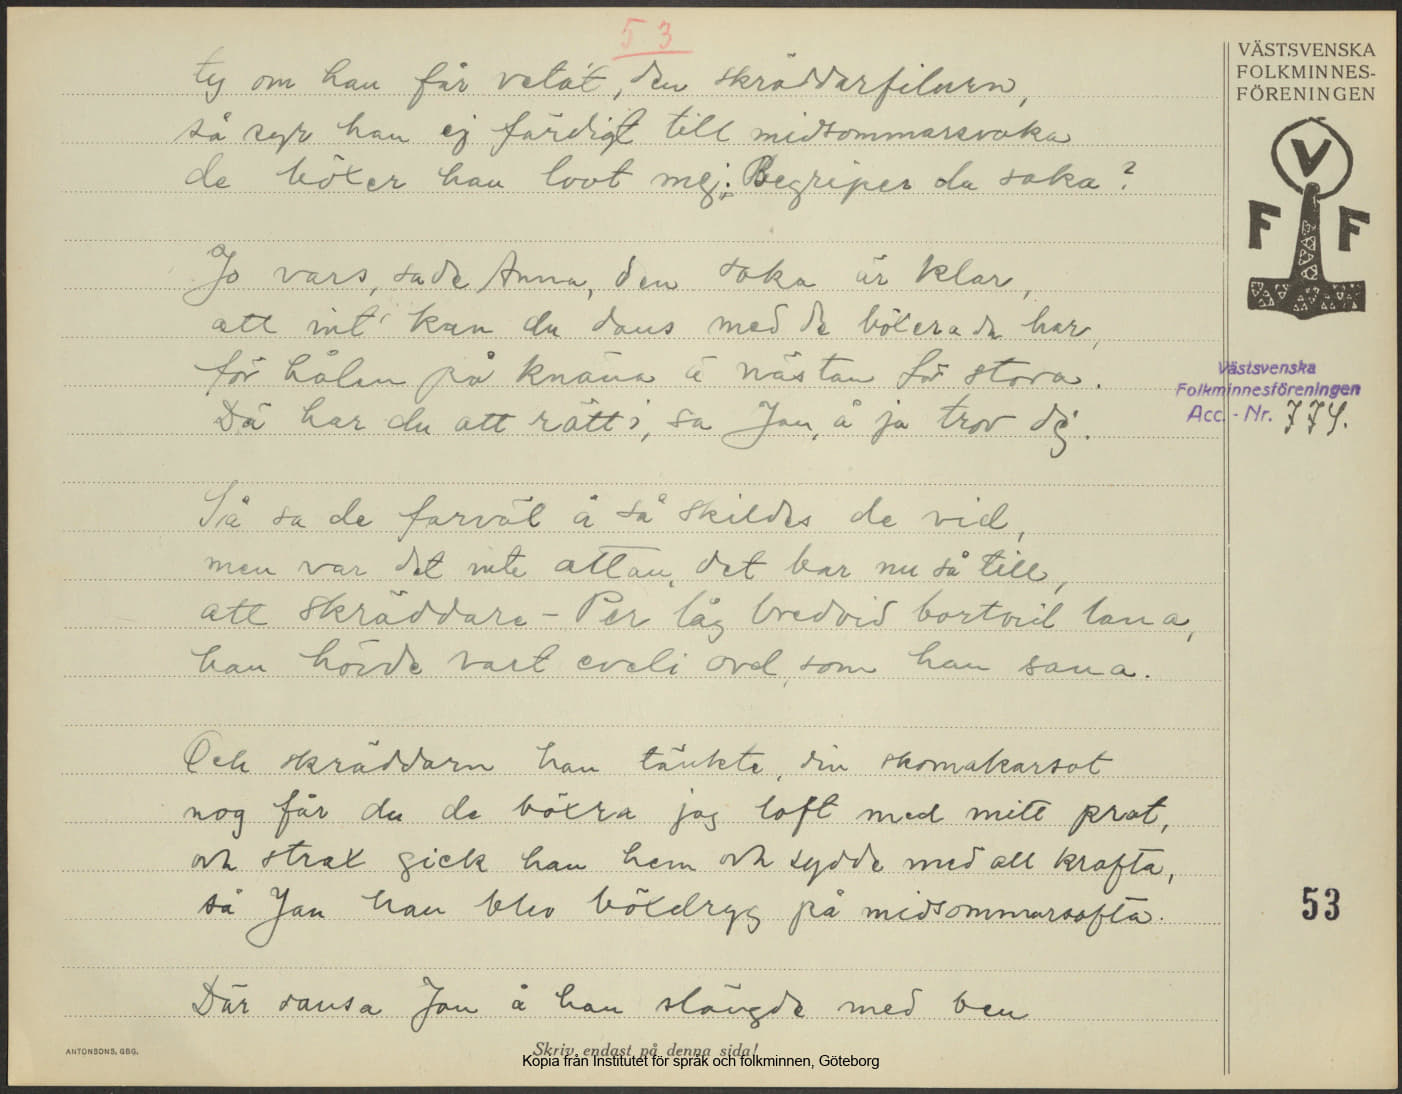 53
ty om han får vetat, den skräddarfiluren,
så syr han ej färdigt till midsommarsvaka
de böxer han lovt mej; Begriper du saka?
Jo vars, sade Anna, den saka är klar,
att int' kan du dans med de böxera du har,
för hålen på knäna ä nästan för stora.
Dä har du att rätt i, sa Jan, å ja trov dig.
Så sa de farväl å så skildes de vid,
men var det inte attan, det bar nu så till,
att Skräddare-Per låg bredvid bortvid
han hörde vart eveli ord, som han sana.
Och skräddarn han tänkte, din skomakarsat
nog får du de böxra jag loft med mitt prat,
och strax gick han hem och sydde med all krafta,
så Jan han blev böxdryg på midsommarsafta.
Där dansa Jan å han slängde med ben
VÄSTSVENSKA
FOLKMINNES-
FÖRENINGEN
V
F F
Västsvenska
Folkminnesföreningen
Acc. - Nr. 774.
53
ANTONSONS, GBG.
Skriv endast på denna sida!
Kopia från Institutet för språk och folkminnen, Göteborg